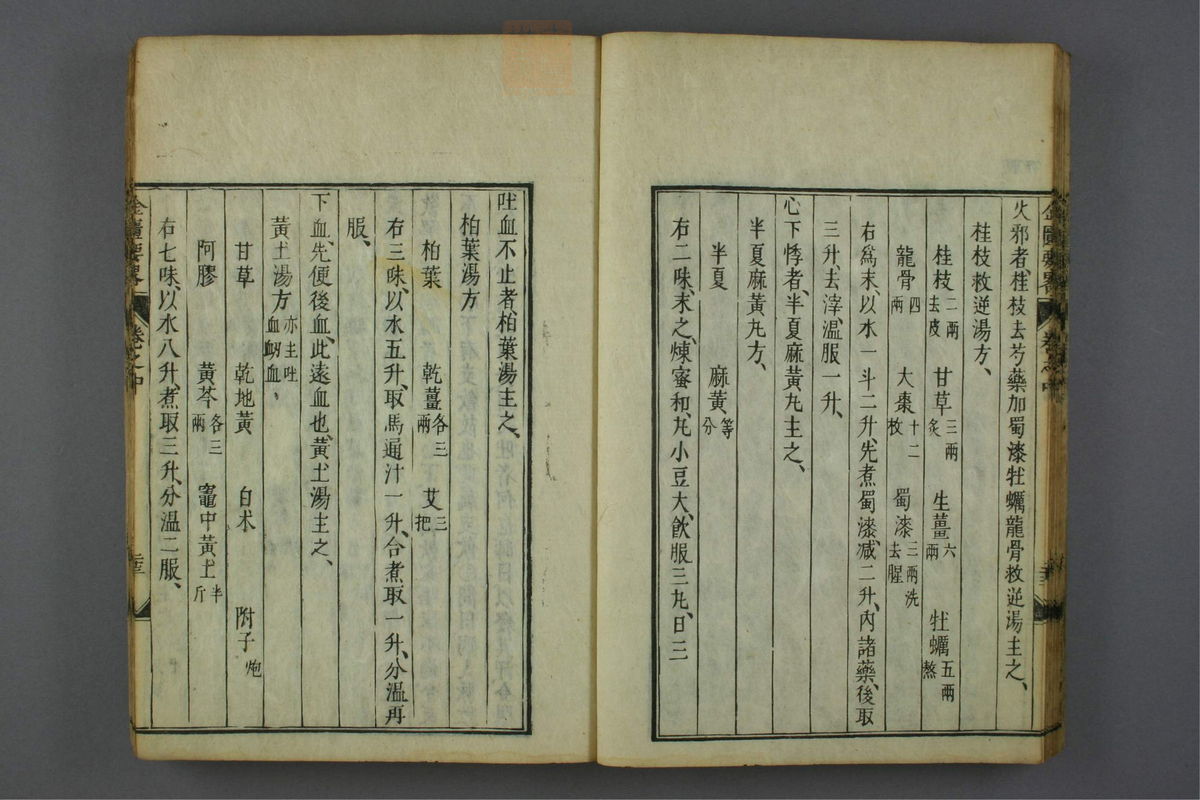 火邪者、桂枝去芍藥加蜀漆牡蠣龍骨救逆湯主之、
桂枝救逆湯方、
桂枝二兩去皮 甘草三兩炙 生薑六兩 牡蠣五兩熬
龍骨四兩 大棗十二枚 蜀漆三兩洗去腥
右爲末、以水一斗二升、先煮蜀漆、减二升、內諸藥、後取
三升、去滓、温服一升、
心下悸者、半夏麻黃丸主之、
半夏麻黃丸方、
半夏 麻黃等分
右二味、末之、煉蜜和丸小豆大、飲服三丸、日三
吐血不止者、柏葉湯主之、
柏葉湯方
柏葉 乾薑各三兩 艾三把
右三味、以水五升、取馬通汁一升、合煮取一升、分温再
服、
下血、先便後血、此遠血也、黃土湯主之、
黃土湯方亦主吐血衂血、
甘草 乾地黃 白术 附子炮
阿膠 黃芩各三兩 竈中黃土半斤
右七味、以水八升、煮取三升、分温二服、
金匱要畧 卷之中